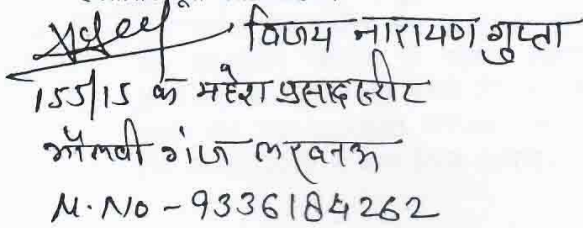 विजय नारायण गुप्ता
155/15 क महेश प्रसाद स्ट्रीट
मौलवी गंज लखनऊ
M.No - 9336184262